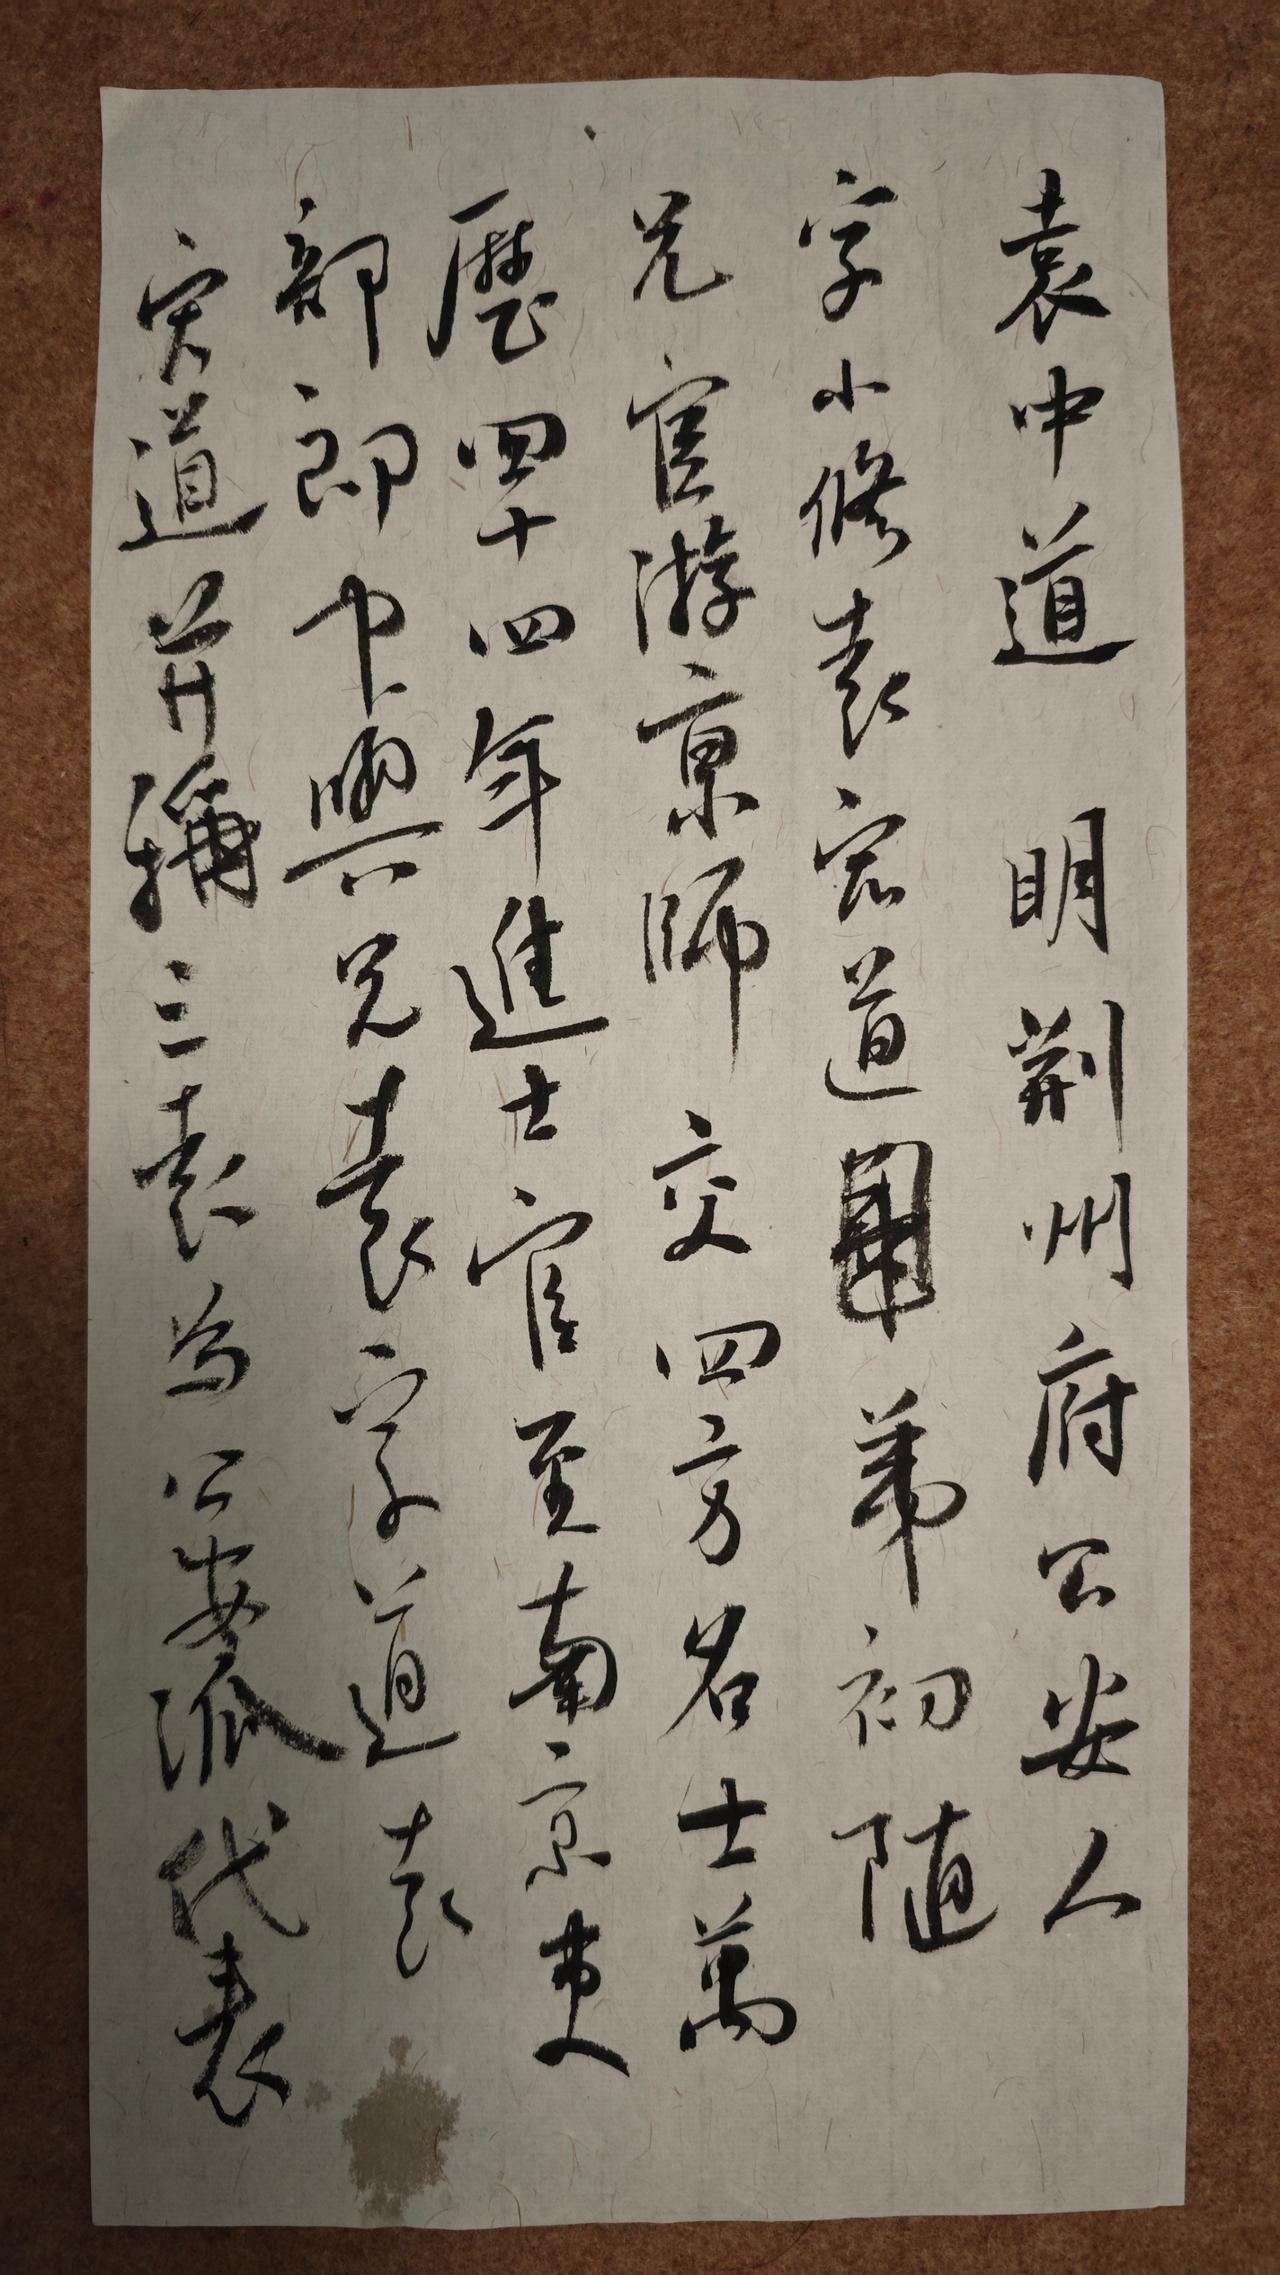 袁中道 明荆州府公安人
字小修袁宏道弟初随
兄官游京师交四方名士萬
歷四十四年進士官至南京吏
部郎中與兄袁宗道袁
宏道并稱三袁為公安派代表